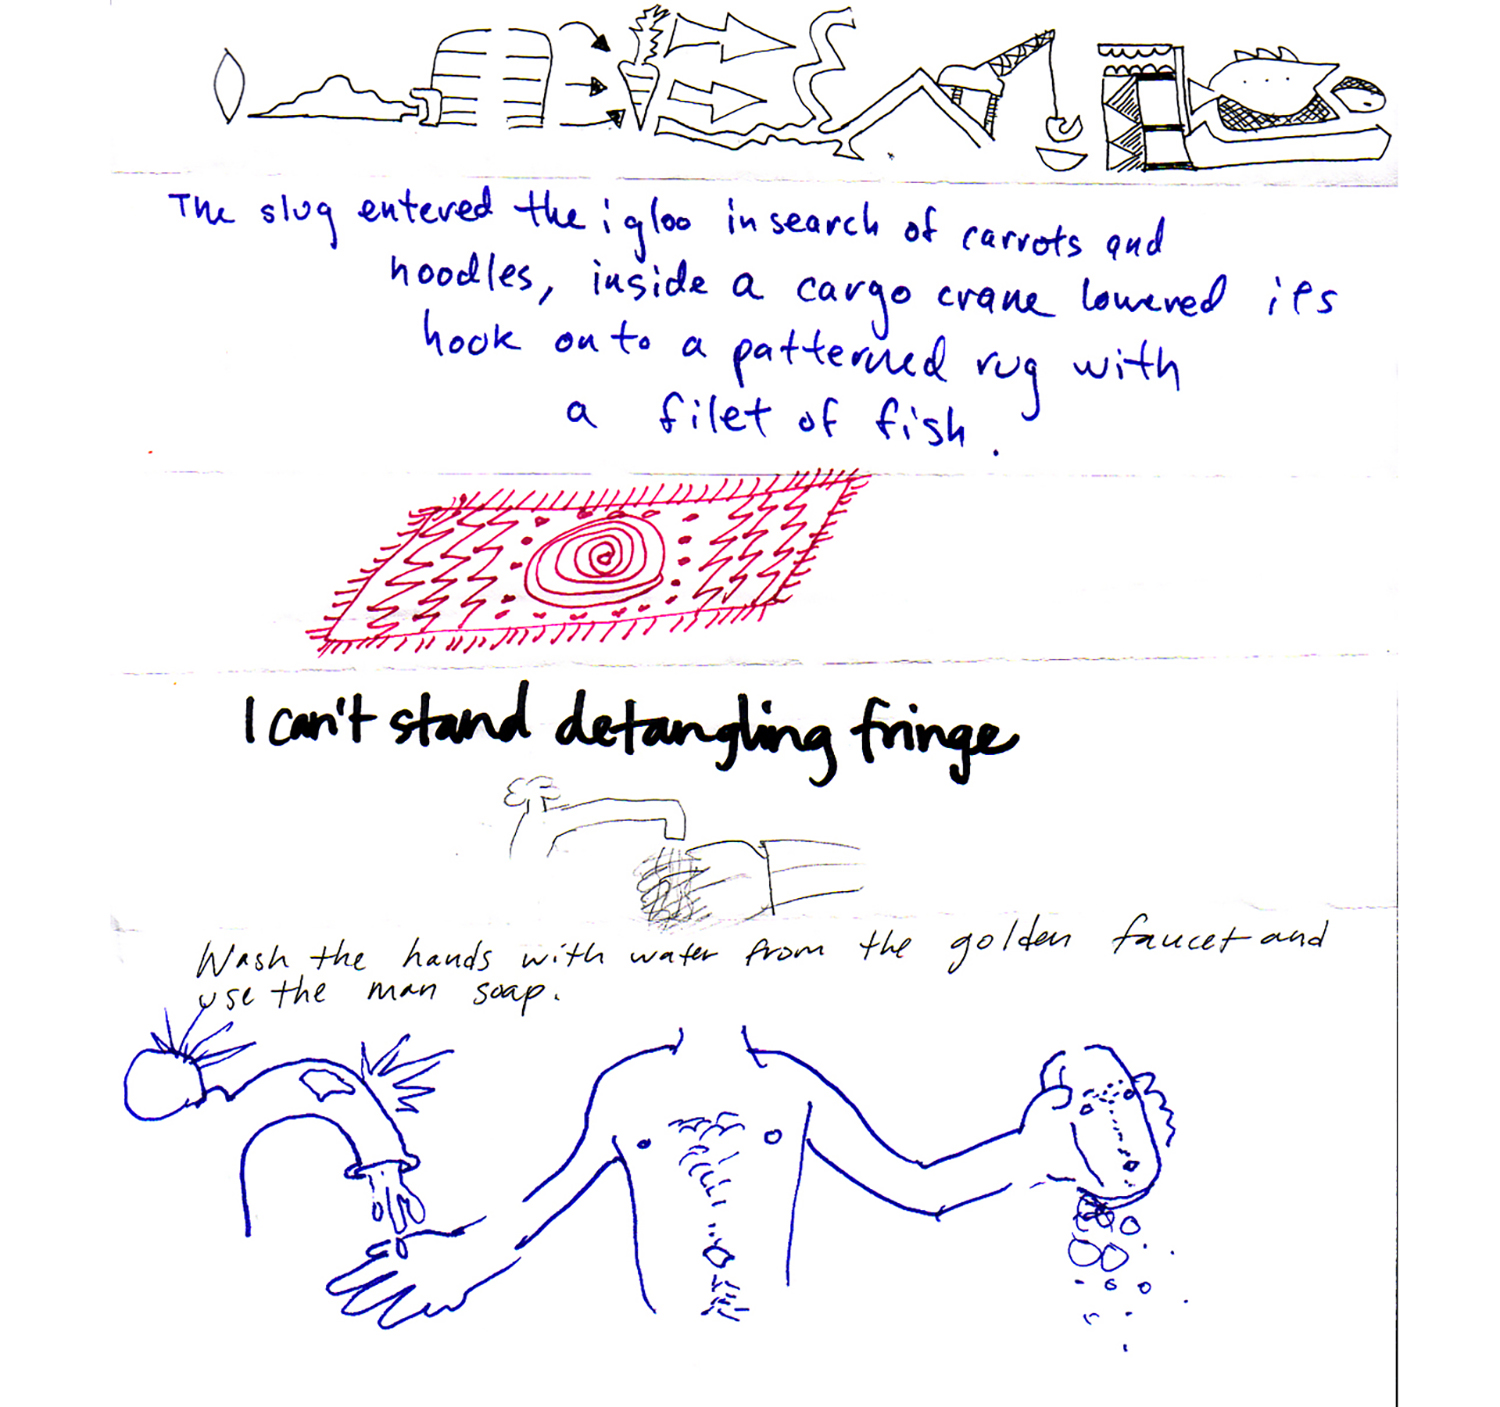 The slug entered the igloo in search of carrots and
noodles, inside a cargo crane lowered its
hook onto a patterned rug with
a filet of fish.
I can't stand detangling fringe
Wash the hands with water from the golden faucet and
use the man soap.